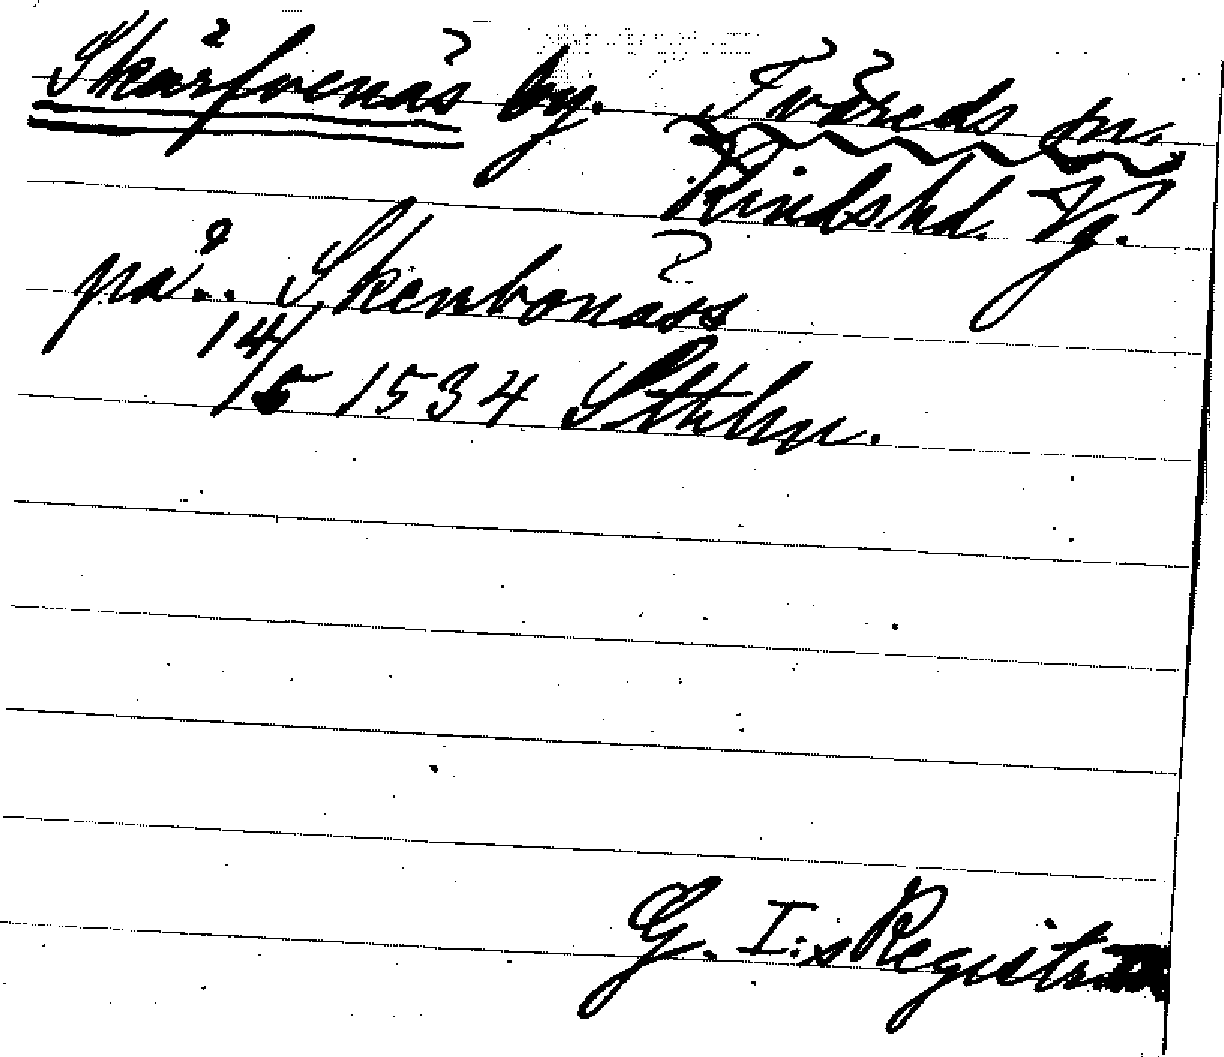 Skärfvenäs by. Tvåreds sn.
Kindshd. Vg.
på.. Skenbonäss
14/5 1534 Sthlm.
G. I:s Registr.